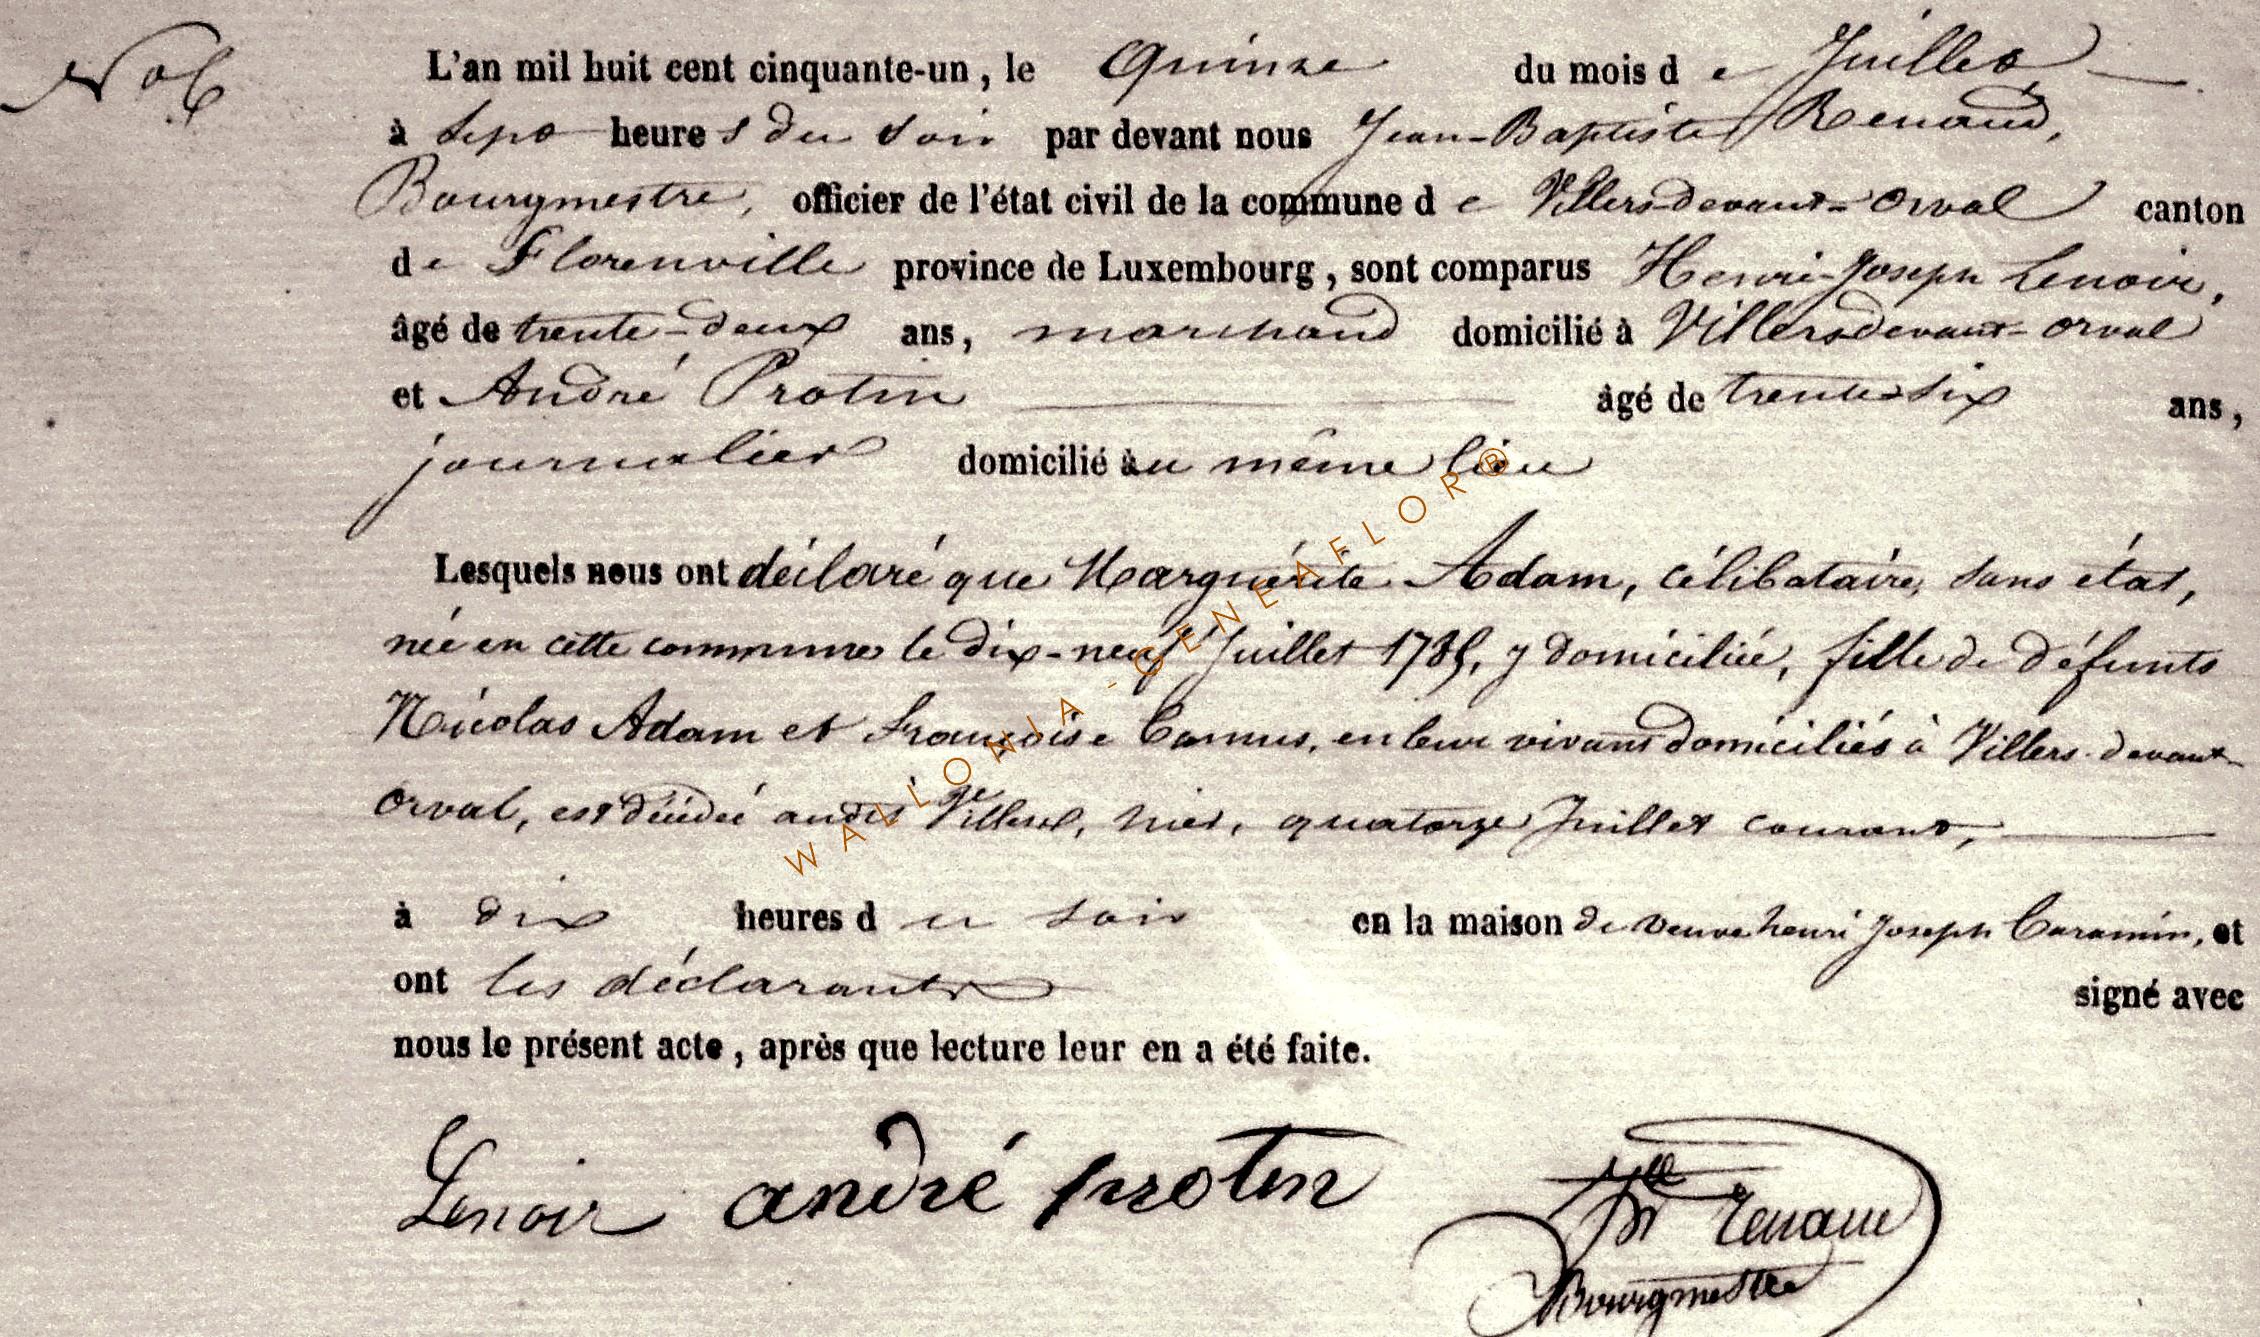 No 6
L'an mil huit cent cinquante-un, le Quinze du mois de Juillet
à sept heures du soir par devant nous Jean-Baptiste Renaud,
Bourgmestre, officier de l'état civil de la commune de Villers-devant-Orval canton
de Florenville province de Luxembourg, sont comparus Henri-Joseph Lenoir,
âgé de trente-deux ans, marchand domicilié à Villers-devant-orval
et André Protin âgé de trente-six ans,
journalier domicilié au même lieu
Lesquels nous ont déclaré que Marguérite Adam, célibataire, sans état,
née en cette commune le dix-neuf Juillet 1785, y domiciliée, fille de défunts
Nicolas Adam et Françoise Camus, en leur vivant domiciliés à Villers-devant-
Orval, est décédée audit Villers, hier, quatorze Juillet courant,
à dix heures du soir en la maison de veuve henri Joseph Caramin, et
ont les déclarants signé avec
nous le présent acte, après que lecture leur en a été faite.
Lenoir andré protin
Renaud
Bourgmestre
WALLONIA-GENEAFLOR®